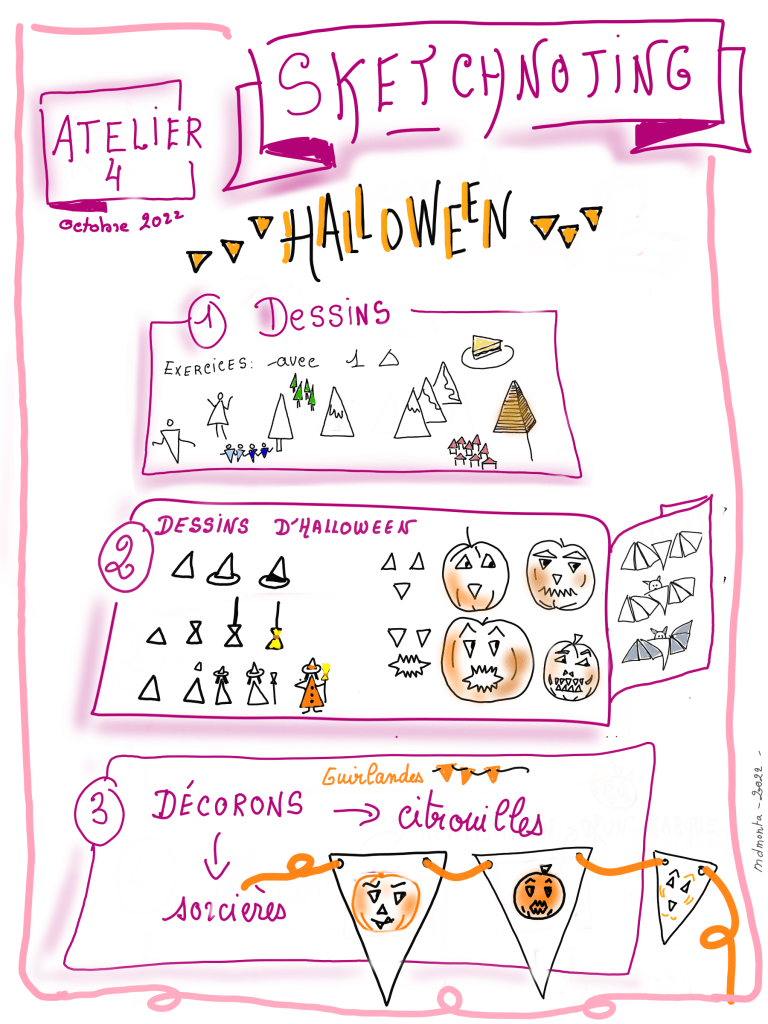 SKETCHNOTING
ATELIER
4
Octobre 2022
HALLOWEEN
1 Dessins
EXERCICES: avec 1
2 DESSINS D'HALLOWEEN
3
Guirlandes
DÉCORONS → citrouilles
sorcières
mdmonta - 2022 -